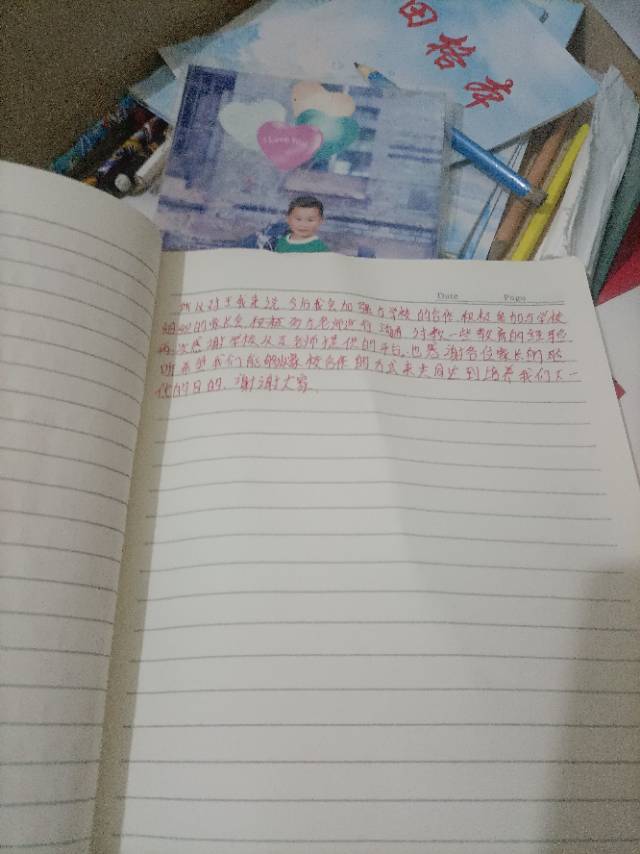 田格本
I Love You
Date
Page
所以对于我来说,今后我会加强与学校的合作,积极参加与学校
组织的家长会,积极努力老师进行沟通,讨教一些教育的经验
再次感谢学校以及老师提供的平台,也感谢各位家长的聆
听,希望我们能够以家校合作的方式来共同达到培养我们下一
代的目的,谢谢大家.